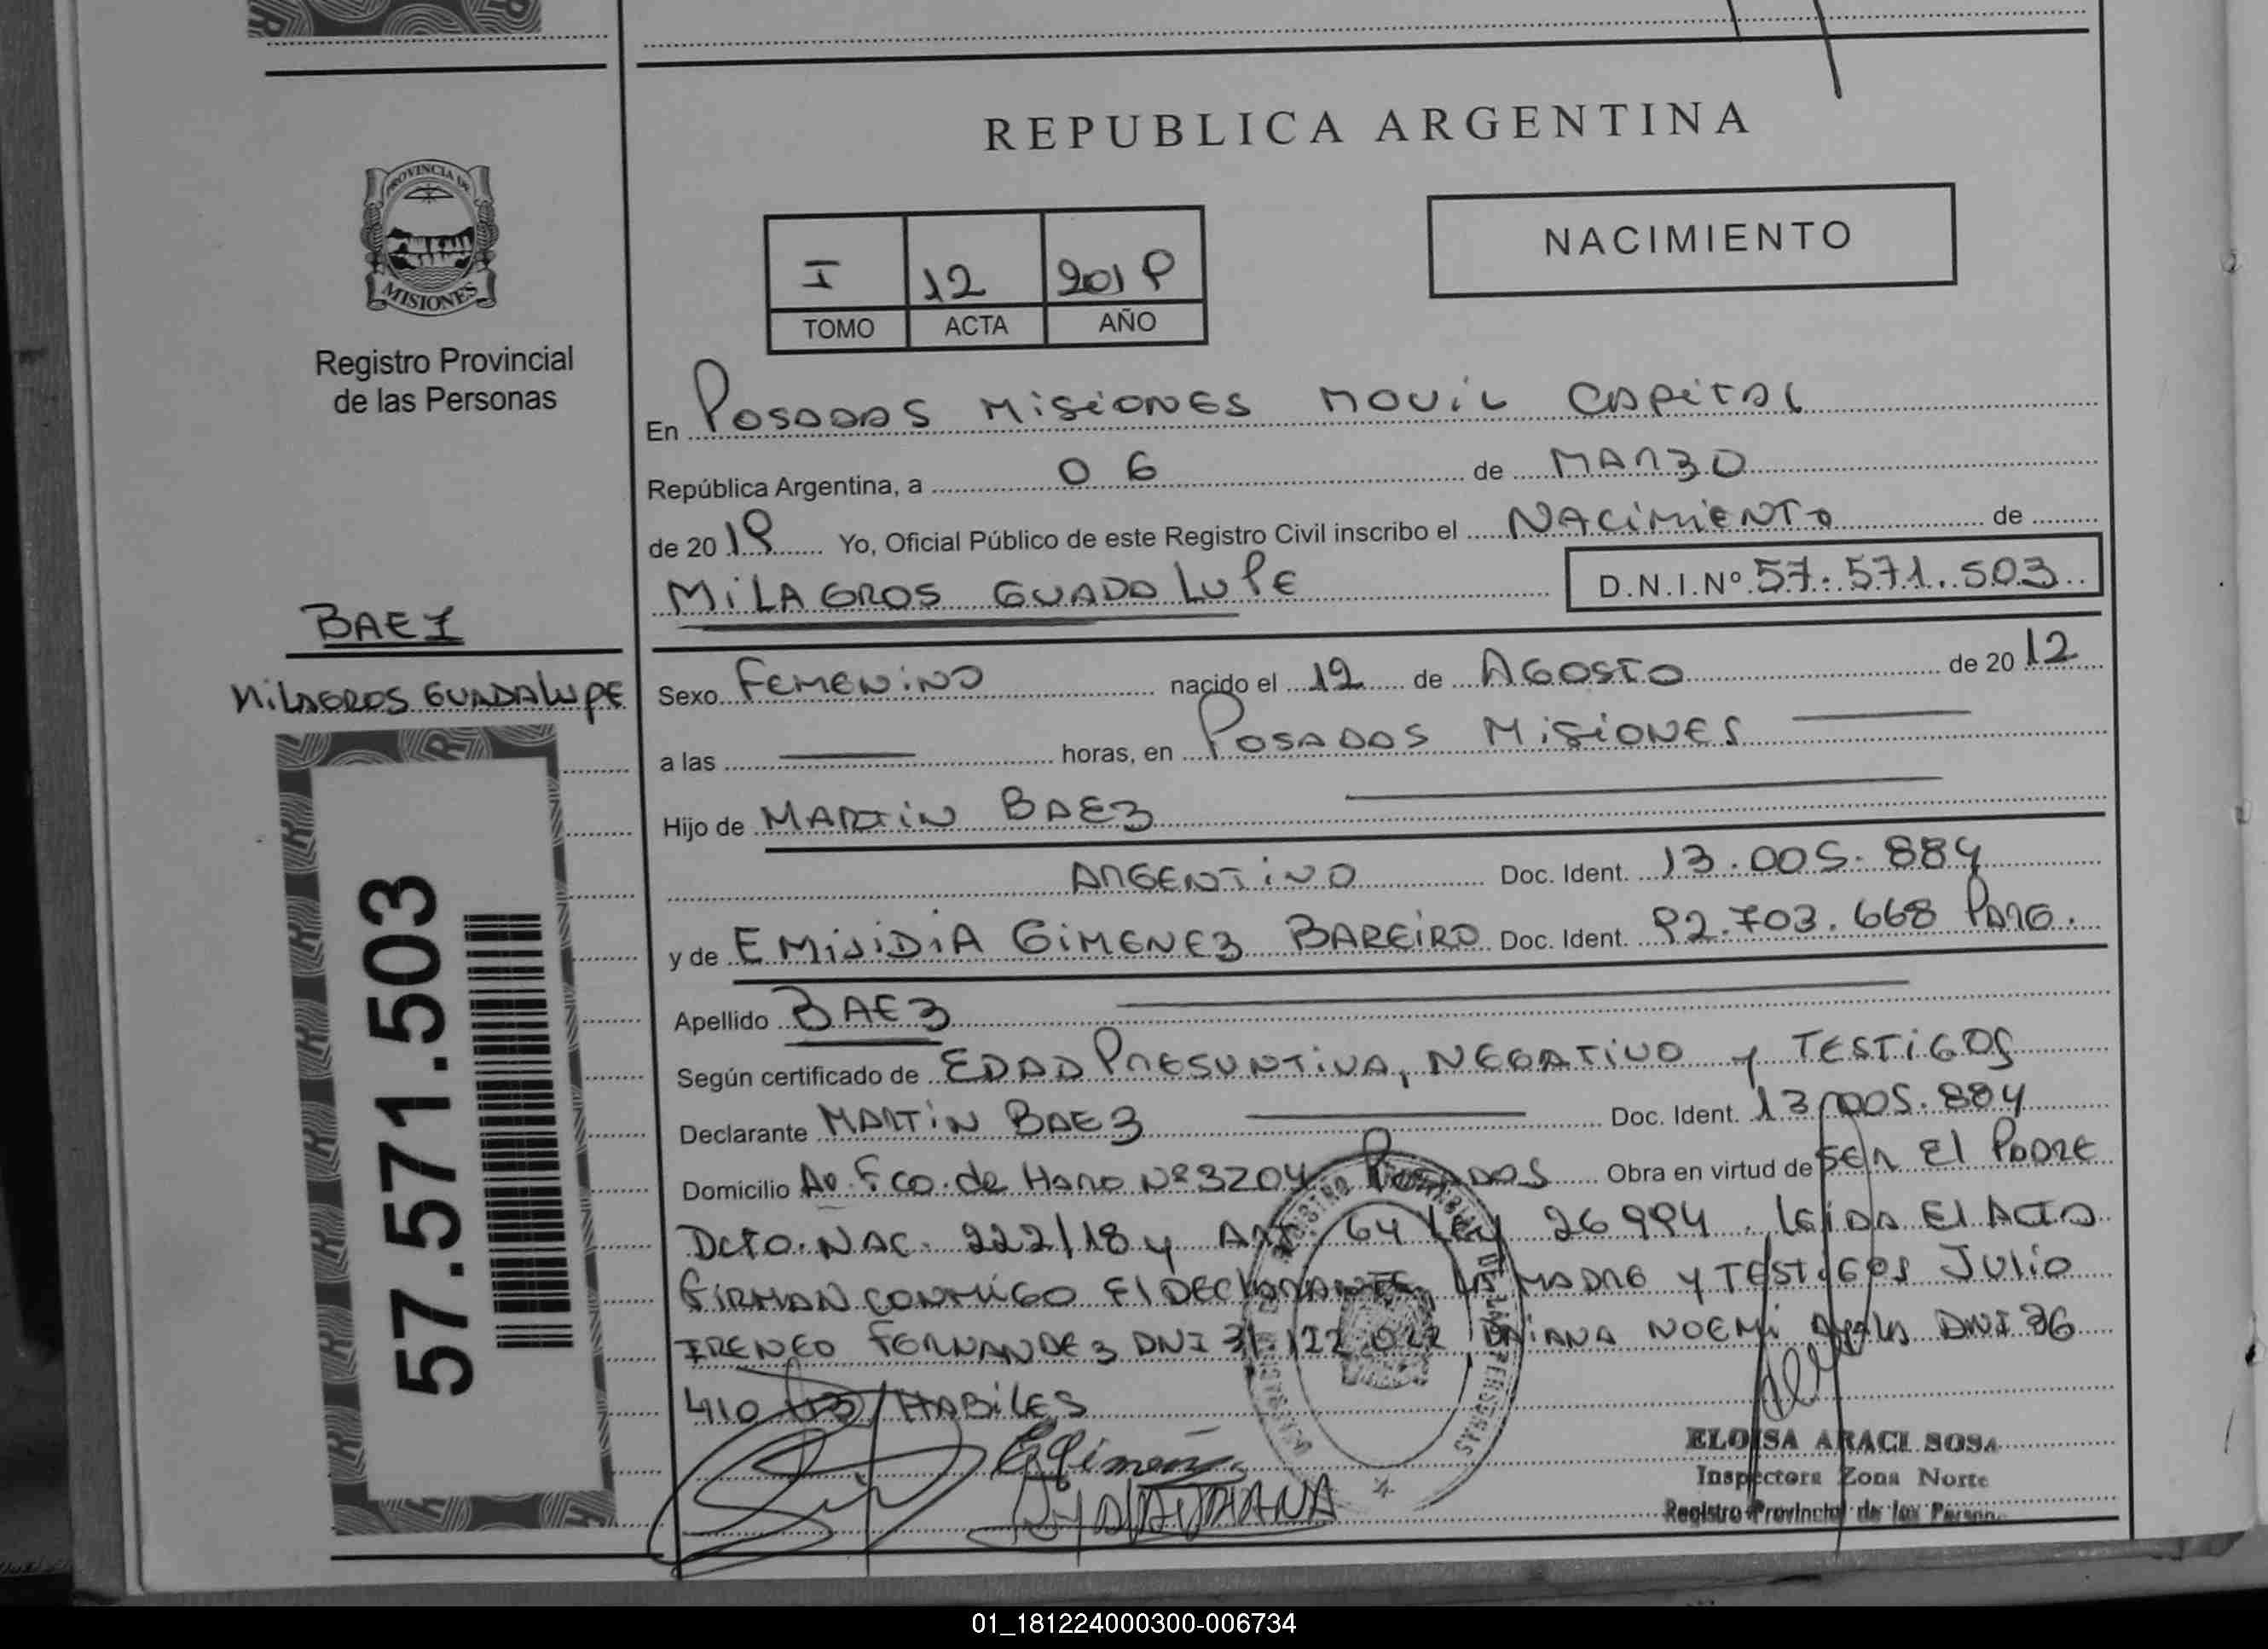 REPUBLICA ARGENTINA
PROVINCIA DE
MISIONES
Registro Provincial
de las Personas
I 12 2019
TOMO ACTA AÑO
NACIMIENTO
En POSADAS MISIONES MOVIL CAPITAL
República Argentina, a 06 de MARZO
de 2019 Yo, Oficial Público de este Registro Civil inscribo el NACIMIENTO de
MILAGROS GUADALUPE D.N.I.Nº 57.571.503
BAEZ
MILAGROS GUADALUPE
57.571.503
Sexo FEMENINO nacido el 12 de AGOSTO de 2012
a las horas, en POSADAS MISIONES
Hijo de MARTIN BAEZ
ARGENTINO Doc. Ident. 13.005.884
y de EMISIDIA GIMENEZ BAREIRO Doc. Ident. 92.703.668 PARG.
Apellido BAEZ
Según certificado de EDAD PRESUNTIVA, NEGATIVO y TESTIGOS
Declarante MARTIN BAEZ Doc. Ident. 13.005.884
Domicilio Av. Fco. de Haro Nº 3204 POSADAS Obra en virtud de SER El PADRE
Dcto. NAC. 222/18 y ART 64 LEY 26994. LEIDA El ACTA
FIRMAN CONMIGO El DECLARANTE, LA MADRE y TESTIGOS JULIO
IRENEO FERNANDEZ DNI 31.122.022 DAIANA NOEMI Ayala DNI 36
410 HABILES
ELOISA ARACI SOSA
Inspectora Zona Norte
Registro Provincial de las Person
01_181224000300-006734